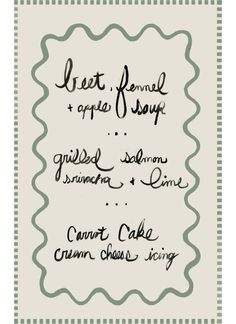 beet, fennel
+ apple soup
grilled salmon
sriracha + lime
carrot cake
cream cheese icing